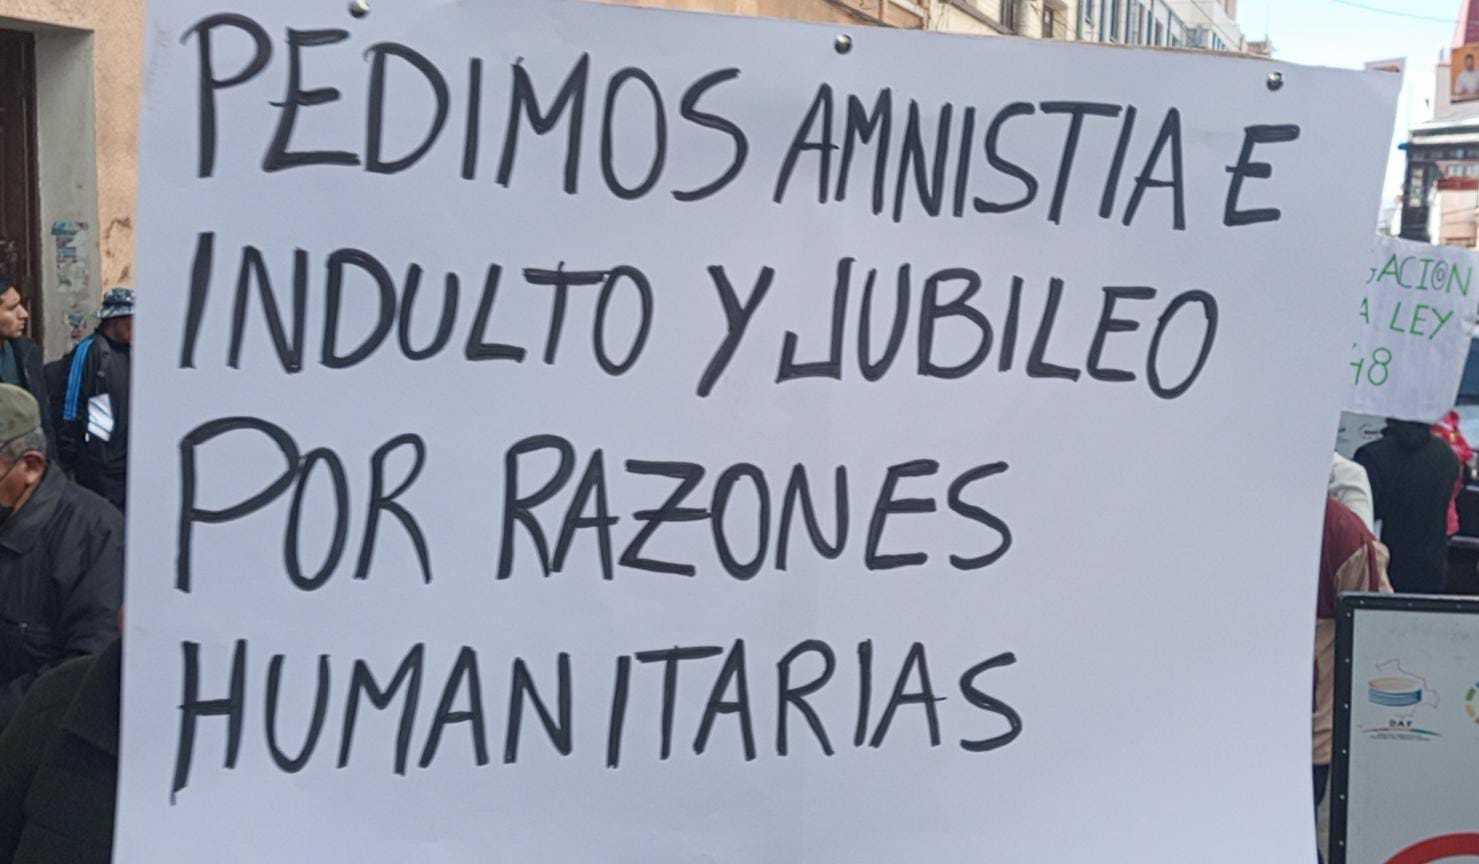 PEDIMOS AMNISTIA E
INDULTO Y JUBILEO
POR RAZONES
HUMANITARIAS
LEY
DAF